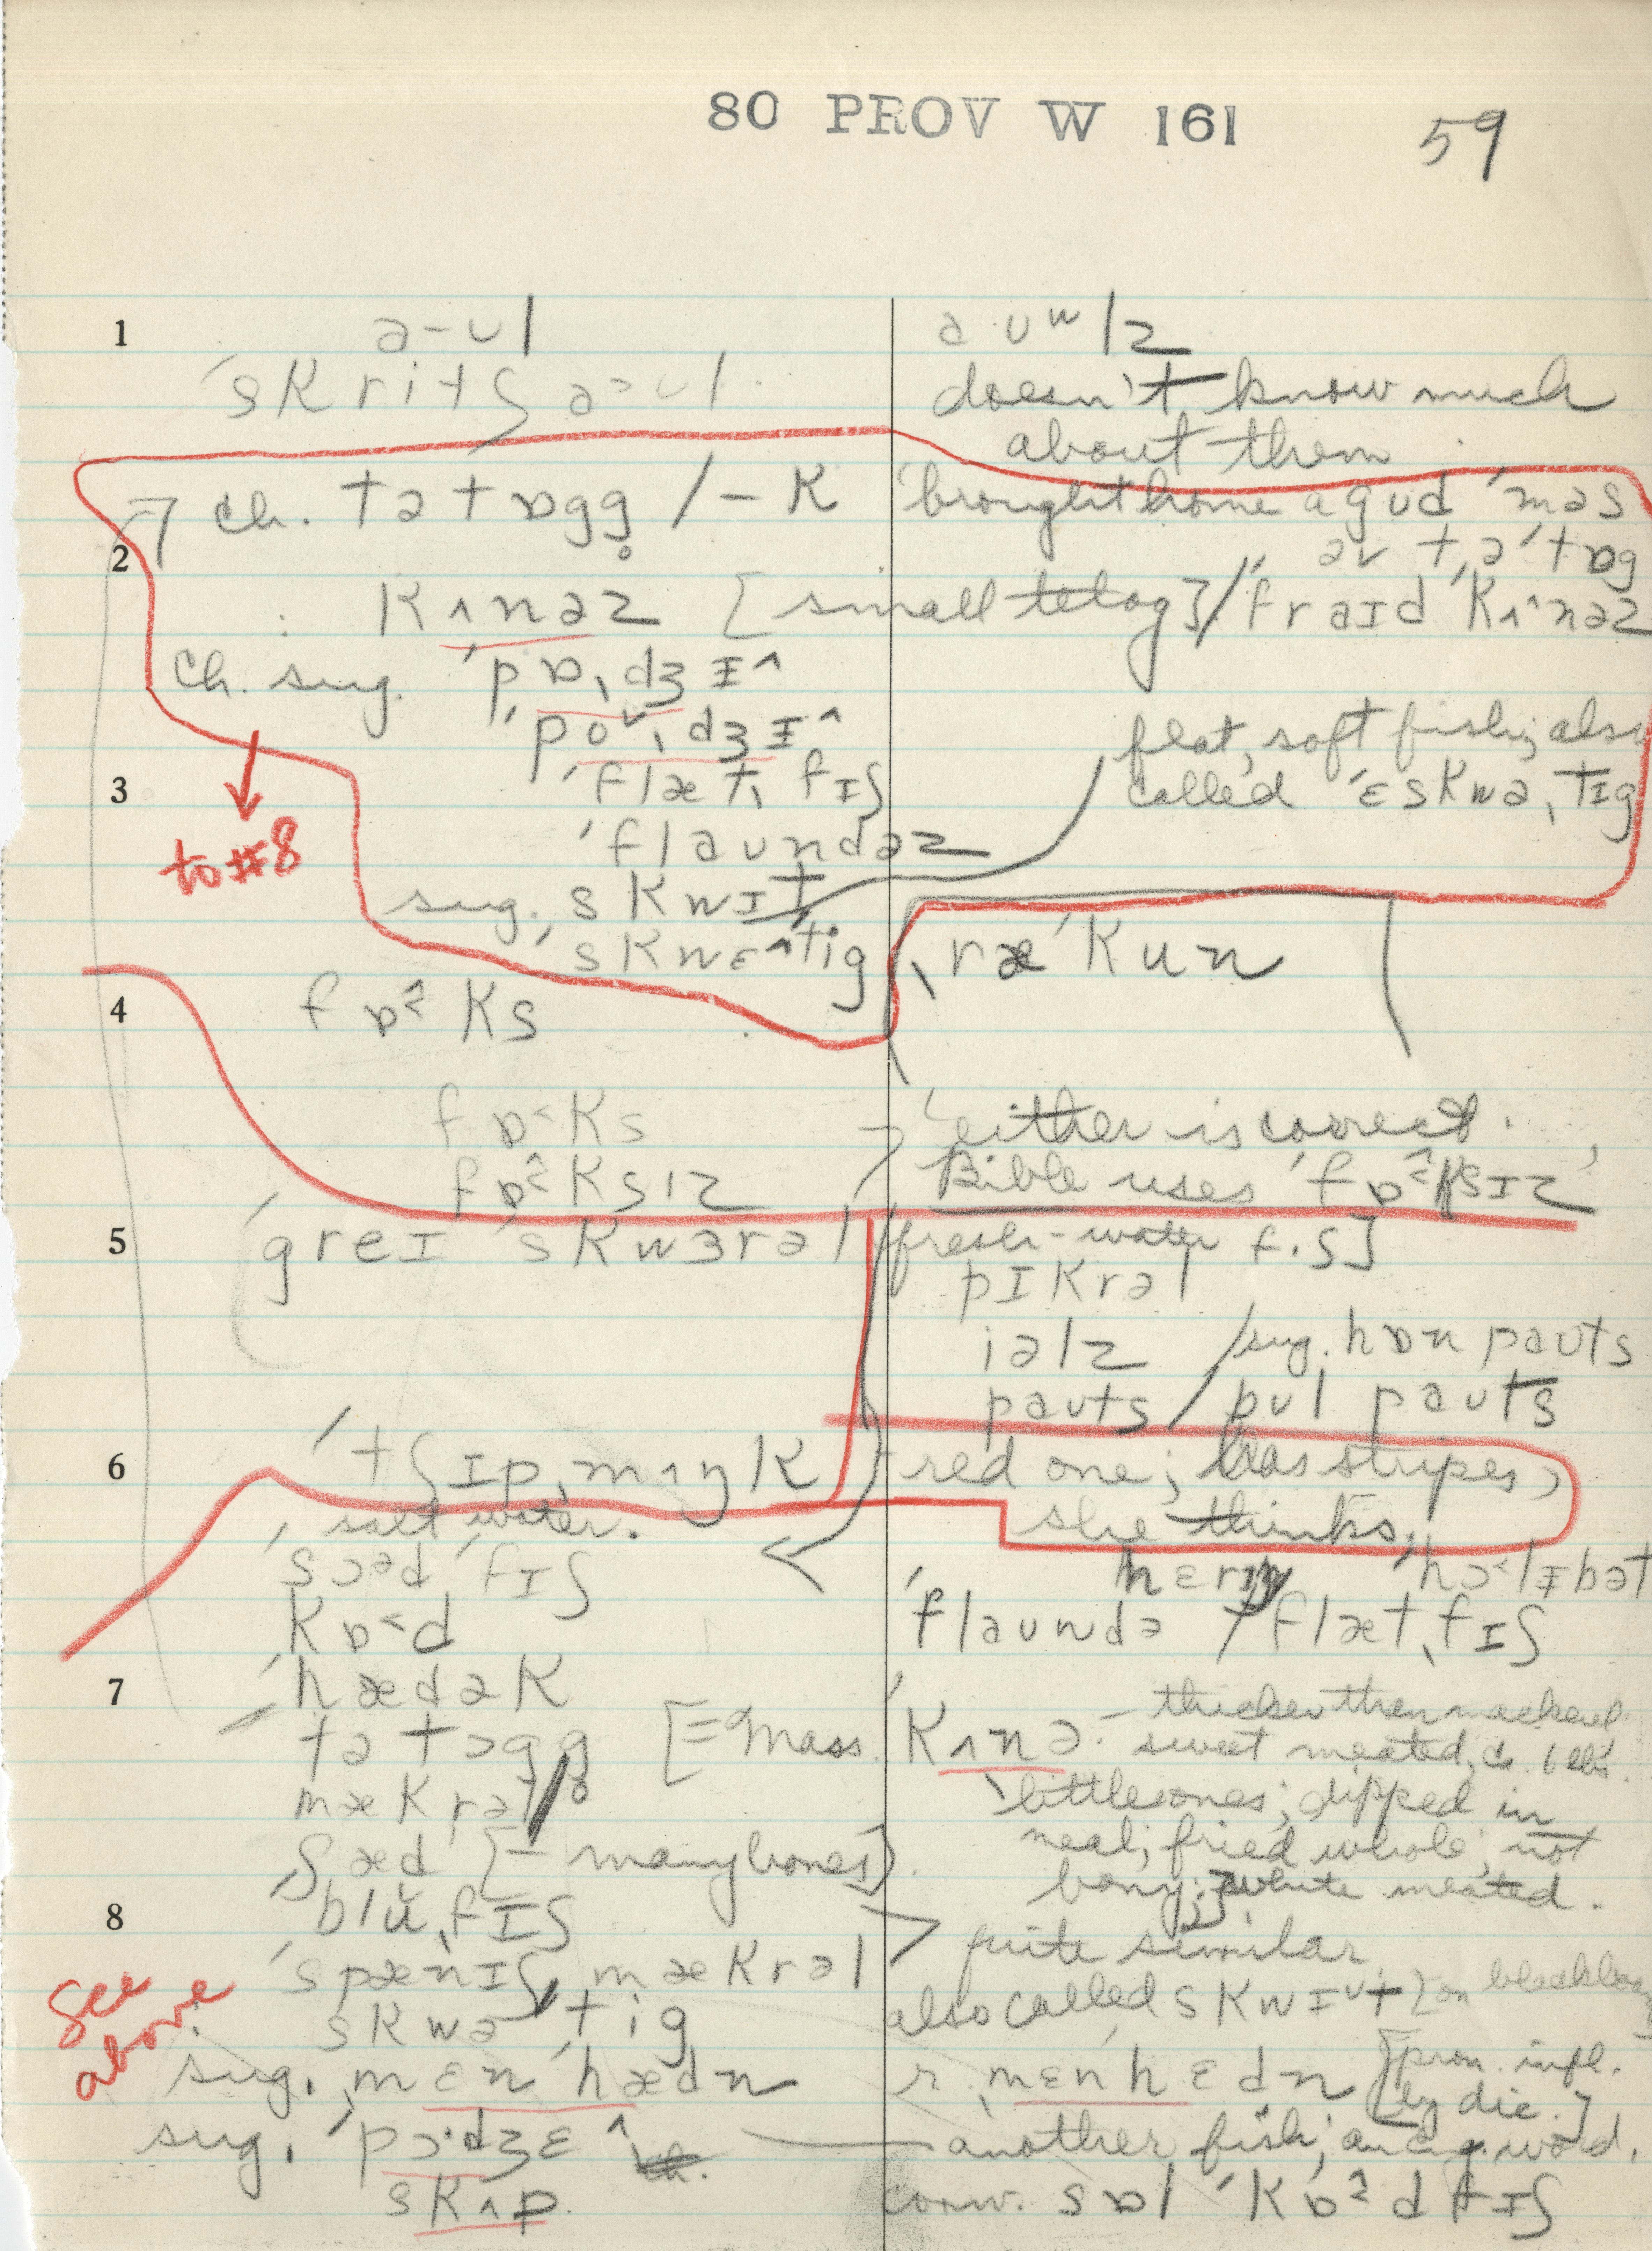 80 PROV W 161
59
1
a-ʊl
ˈskritʃ aᵊʊl
a ʊʷlz
doesn't know much
about them
ch. tətɒgg̥ /-k
brought home a gʊd ˈmɛs
əv t,əˈtɒg
2
kʌnəz [small telog] / ˈfraɪd ˈkʌ^nəz
ch. sug. ˈpɒˌdʒɪ^
ˈpoˌdʒɪ^
flat, soft fish; also
called ˈɛskwəˌtɪg
3
ˈflætˌfɪʃ
to #8
ˈflaʊndəz
sug. skwɪt
ˈskwɛ^tig
ˌræˈkun
4
fɒ^ks
fɒ˂ks
fɒ^ksɪz
either is correct.
Bible uses 'fɒ^ksɪz'
5
ˈgreɪ ˈskwɜrəl
[fresh-water f.ʃ]
pɪkrəl
iəlz / sug. hɒn paʊts
paʊts / pʊl paʊts
6
ˈtʃɪpˌmʌŋk
red one; has stripes,
she thinks.
salt water.
ˈsɔəd ˈfɪʃ
hɛrɪŋ ˈhɔ˂lɪbət
kɒ˂d
ˈflaʊndə / ˈflætˌfɪʃ
7
ˈhædək
tətɔgg̥ [= Mass.
ˈkʌnə - thicker than mackerel
sweet meated,
mækrəl
little ones; dipped in
meal; fried whole; not
ʃæd [- many bones]
bony; white meated.
8
bluˌfɪʃ
ˈspænɪʃ mækrəl > quite similar.
See
above
skwəˈtig
also called skwɪt [on blackboard]
sug. ˌmɛnˈhædn
r. ˌmɛnˈhɛdn [pron. infl.
by dic.]
sug. ˈpɔ·dʒɛ^ — another fish; an Eng. word.
skʌp.
conv. sɒlˈkɒ^dfɪʃ